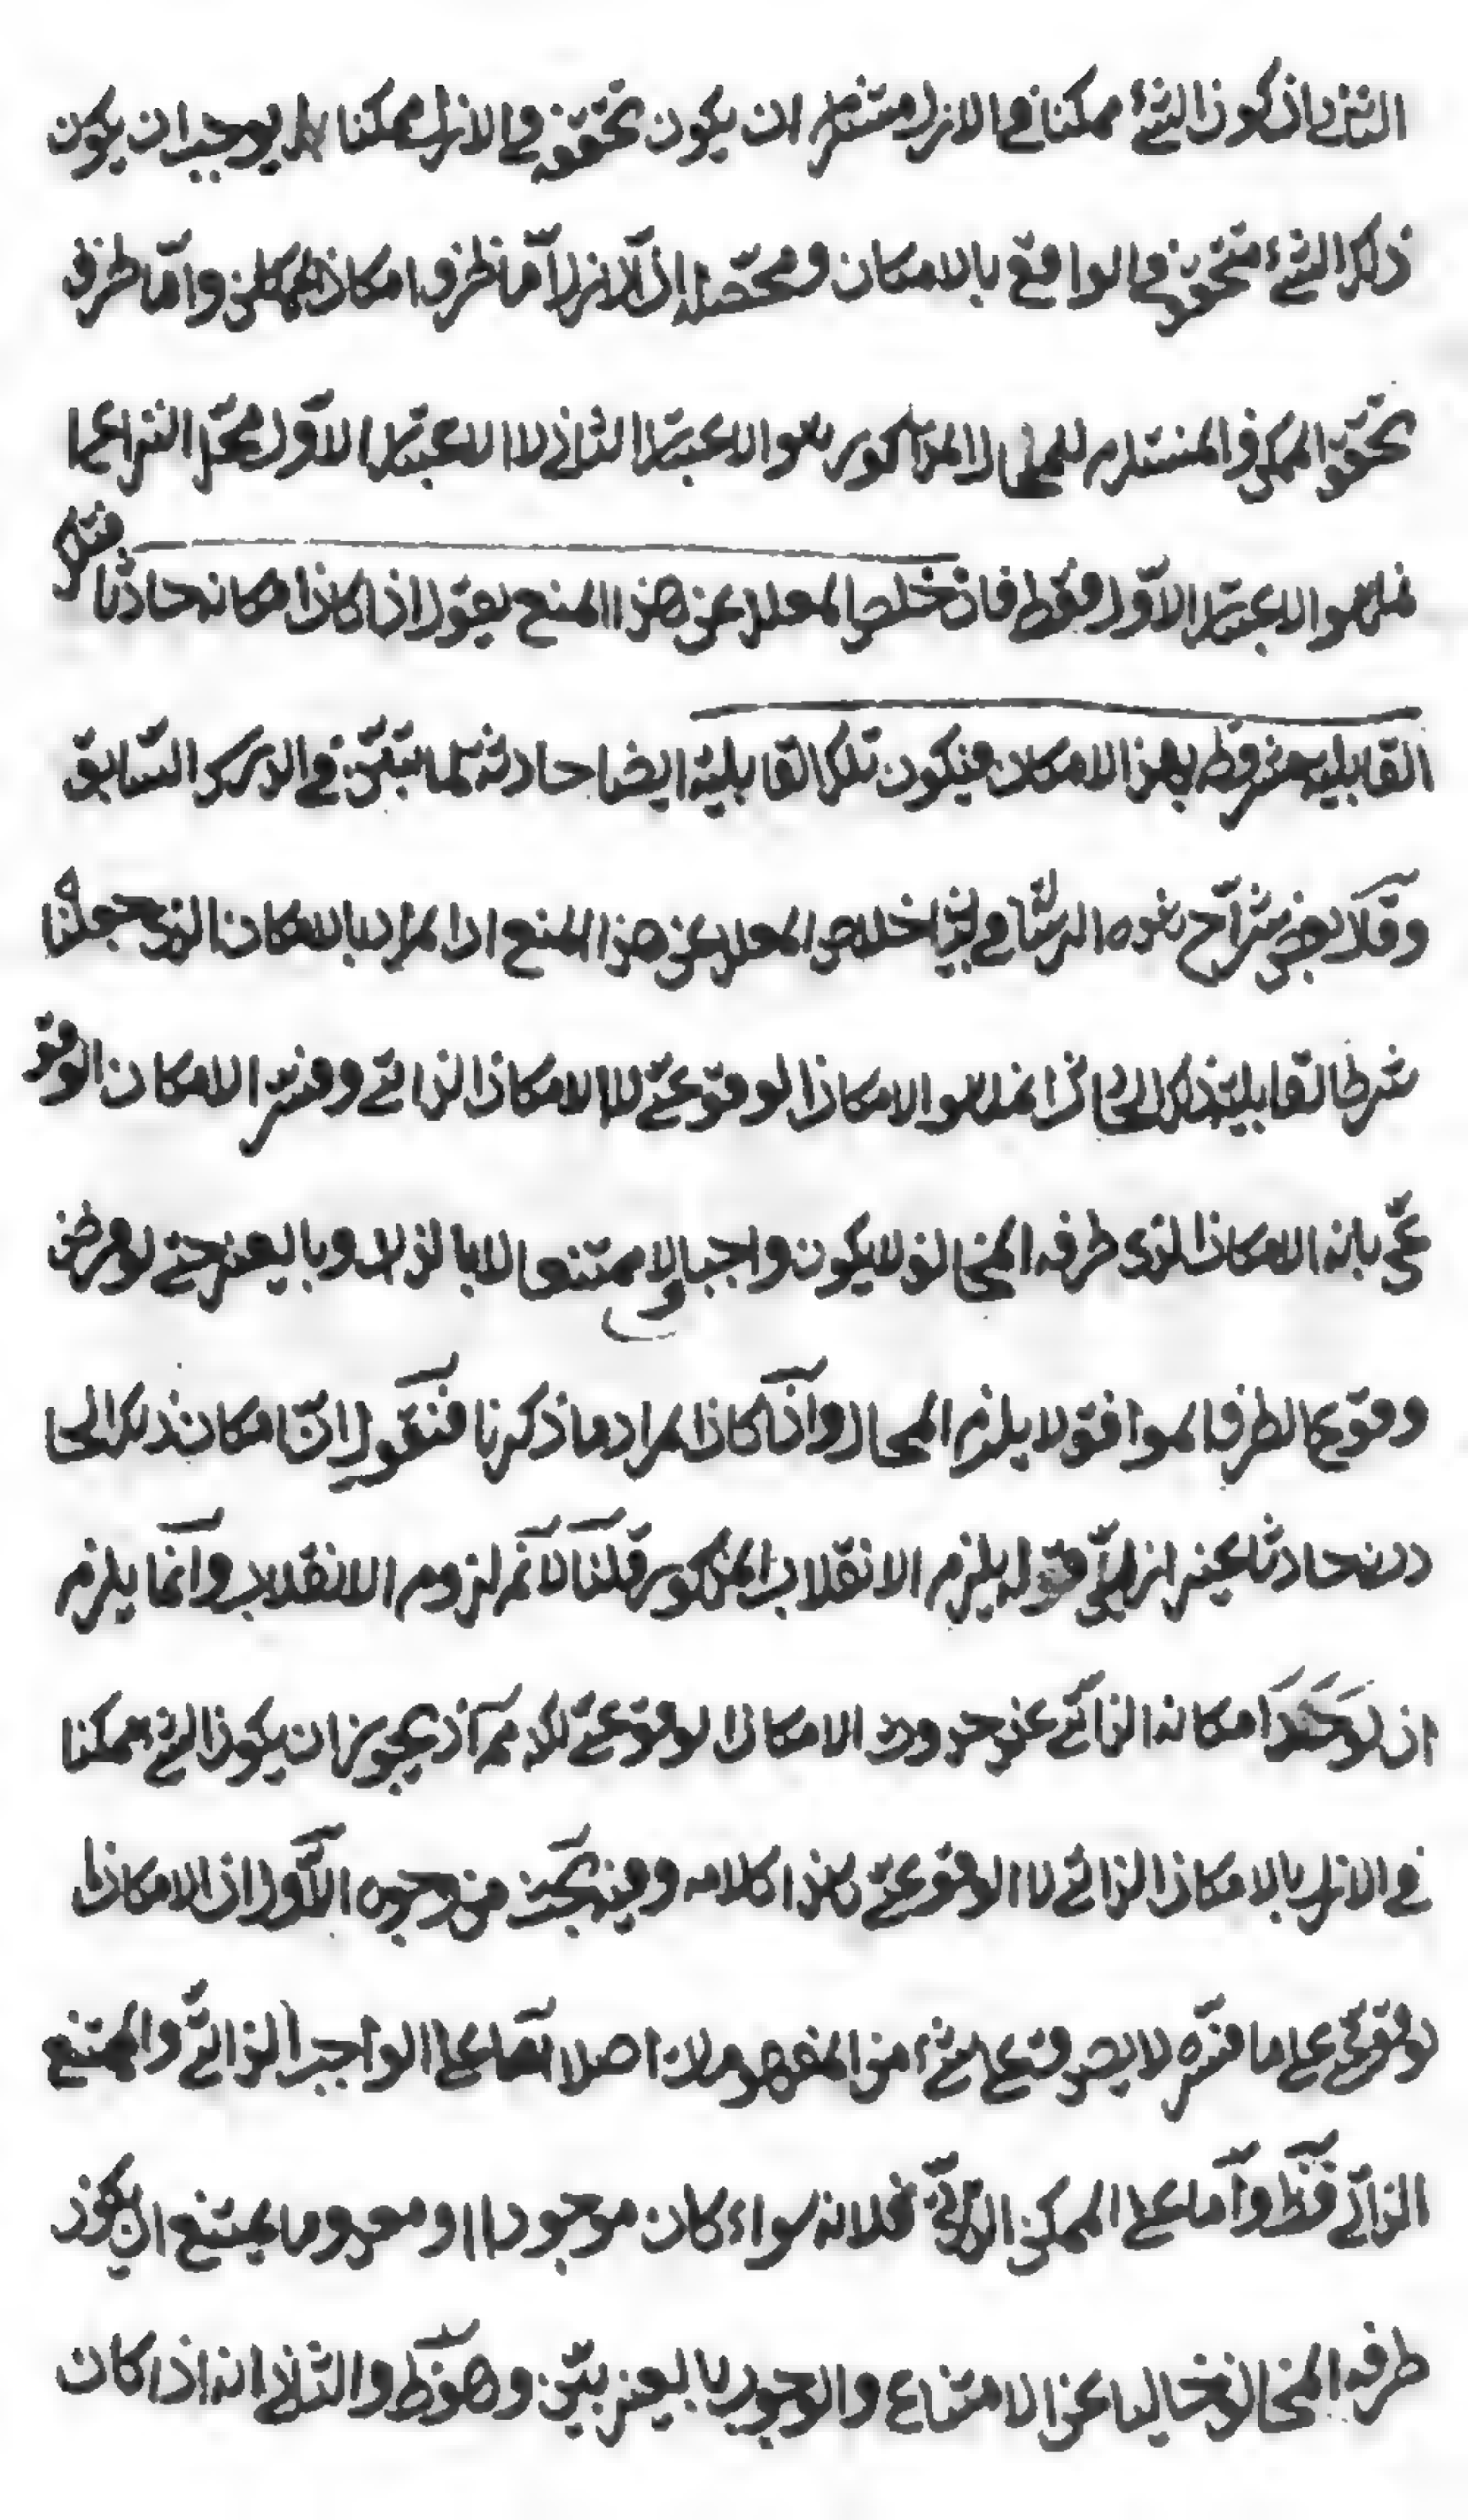 الثاني ان كون الشئ ممكنا في الازل مستلزم ان يكون تحققه في الازل ممكنا بل يوجب ان يكون
ذلك الشئ تحققه في الواقع بالامكان ومحصله ان الازل اما ظرف امكان الممكن واما ظرف
تحقق الممكن والمستلزم للمحال المذكور هو الاعتبار الثاني لا الاعتبار الاول ومحل النزاع
هو الاعتبار الاول فقط فان خلص المعلل عن هذا المنع بقول اذا كان امكانه حادثا فتلك
القابلية مشروطة بهذا الامكان فيكون تلك القابلية ايضا حادثة لما تبين في الدرس السابق
وقال بعض شراح هذه الرسالة خلاص المعلل عن هذا المنع ان المراد بالامكان الذي جعلناه
شرط القابلية ذلك الحادث انما هو الامكان الوقوعي لا الامكان الذاتي وفسر الامكان الوقو
عي بانه الامكان الذي طرفه المخالف لا يكون واجبا ولا ممتنعا لا بالذات ولا بالغير حتى لو فرض
وقوع الطرف الموافق لا يلزم المحال واذا كان المراد ما ذكرنا فنقول ان امكان ذلك الحا
دث حادث غير ازلي قوله يلزم الانقلاب المذكور قلنا لا نم لزوم الانقلاب وانما يلزم
ان لو امكانه الذاتي عن حدوث الامكان الوقوعي لكنه مم اذ يجوز ان يكون الشئ ممكنا
في الازل بالامكان الذاتي لا الوقوعي هذا كلامه وفيه بحث من وجوه الاول ان الامكان
لوقوعي على ما فسره لا يصدق على شئ من المفهومات اصلا اما على الواجب الذاتي والممتنع
الذاتي فظ واما على الممكن الذاتي فلانه سواء كان موجودا او معدوما يمتنع ان يكون
طرفه المخالف خاليا عن الامتناع والوجوب بالغير بين وهو ظ والثاني انه اذا كان